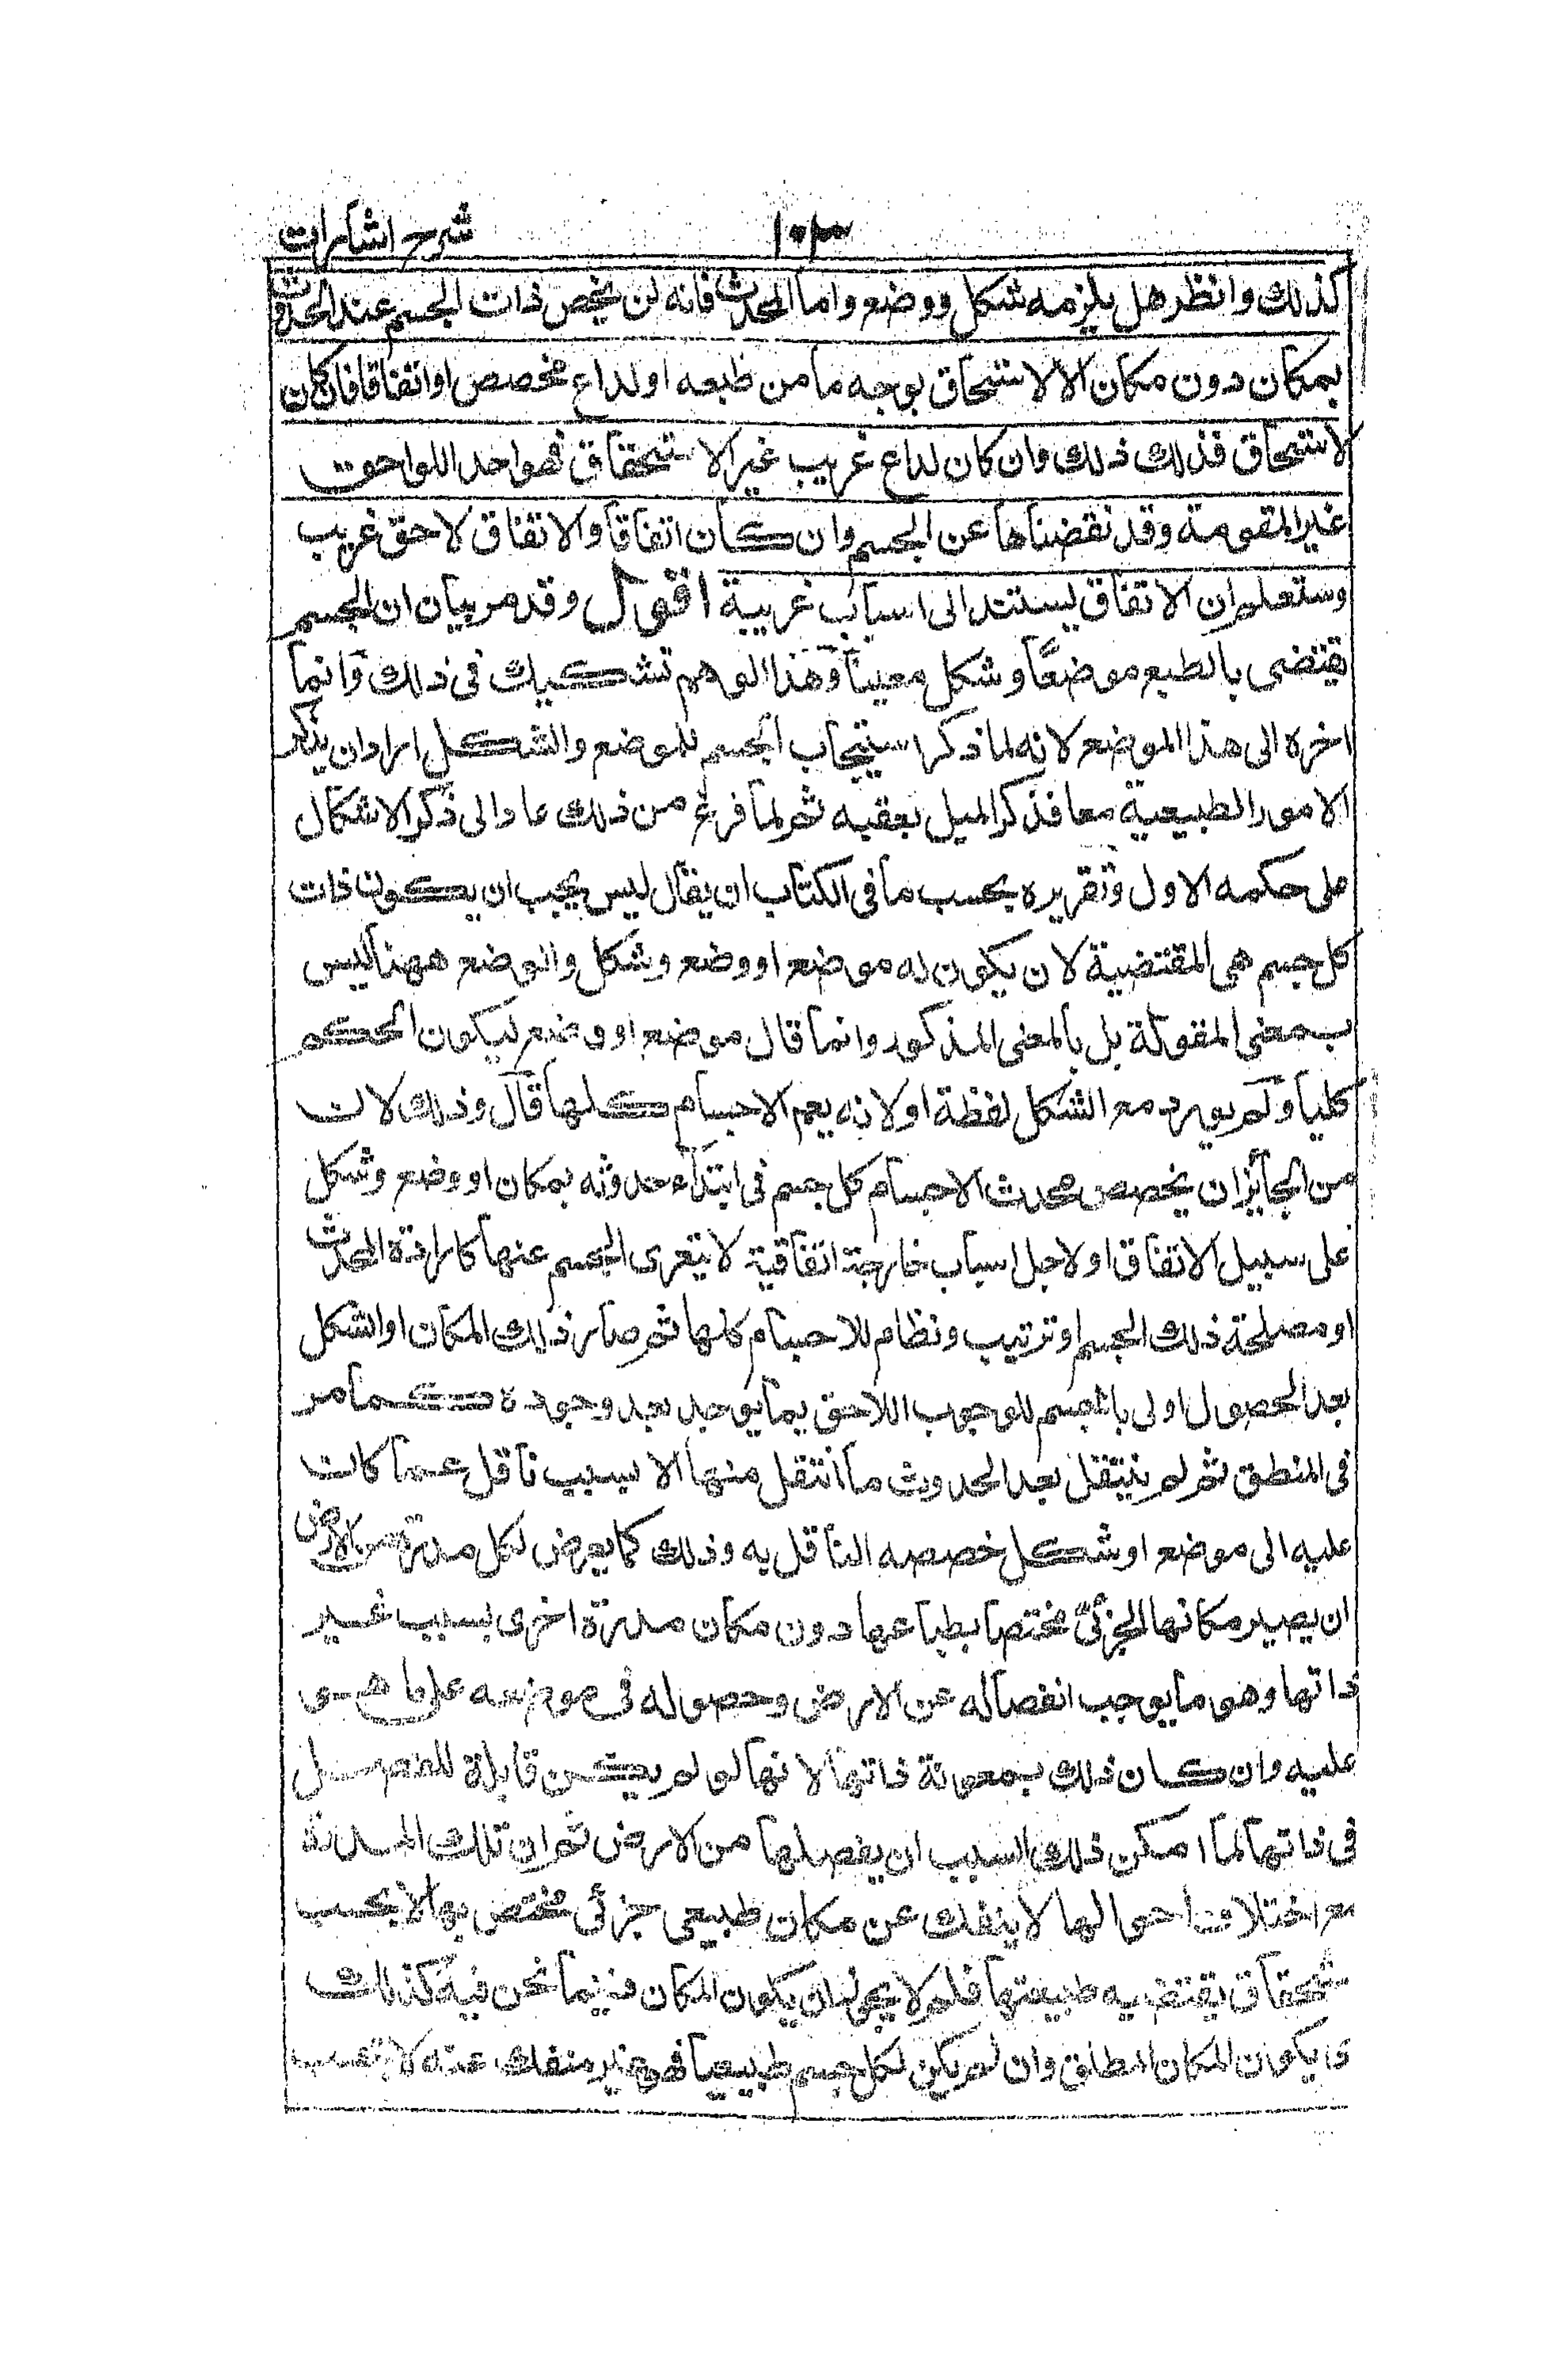 شرح اشارات
۱۰۳
كذلك وانظر هل يلزمه شكل ووضع واما المحدث فانه لن يخص ذات الجسم عند الحدوث
بمكان دون مكان الا لاستحقاق بوجه ما من طبعه او لداع مخصص او اتفاقا فان كان
لاستحقاق فذلك ذلك وان كان لداع غريب غير الاستحقاق فهو احد اللواحق
غير المقومة وقد نقضناها عن الجسم وان كان اتفاقا والاتفاق لاحق غريب
وستعلم ان الاتفاق يستند الى اسباب غريبة اقول وقد مر بيان ان الجسم
يقتضى بالطبع موضعا وشكل معينا وهذا الوهم تشكيك فى ذلك وانما
اخره الى هذا الموضع لانه لما ذكر استيجاب الجسم للموضع والشكل اراد ان يذكر
الامور الطبيعية معا فذكر الميل بعقبه ثم لما فرغ من ذلك عاد الى ذكر الاشكال
على حكمه الاول وتقريره بحسب ما فى الكتاب ان يقال ليس يجب ان يكون ذات
كل جسم هى المقتضية لان يكون له موضع او وضع وشكل والوضع ههنا ليس
بمعنى المقولة بل بالمعنى المذكور وانما قال موضع او وضع ليكون الحكم
كليا ولم يورد مع الشكل لفظة او لانه يعم الاجسام كلها قال وذلك لان
من الجائز ان يخصص محدث الاجسام كل جسم فى ابتداء حدوثه بمكان او وضع وشكل
على سبيل الاتفاق او لاجل اسباب خارجة اتفاقية لا يتعرى الجسم عنها كارادة المحدث
او مصلحة ذلك الجسم او ترتيب ونظام للاجسام كلها ثم صار ذلك المكان او الشكل
بعد الحصول اولى بالجسم للوجوب اللاحق بما يوجد بعد وجوده كما مر
فى المنطق ثم لم ينتقل بعد الحدوث ما انتقل منها الا بسبب ناقل عما كان
عليه الى موضع او شكل خصصه الناقل به وذلك كما يعرض لكل مدرة من الارض
ان يصير مكانها الجزئى مختصا بطباعها دون مكان مدرة اخرى بسبب غير
ذاتها وهو ما يوجب انفصاله عن الارض وحصوله فى موضعه على ما هى
عليه وان كان ذلك بمعونة ذاتها لانها لو لم يكن قابلة للفصل
فى ذاتها لما امكن ذلك السبب ان يفصلها من الارض ثم ان تلك المدرة
مع اختلاف احوالها لا ينفك عن مكان طبيعى جزئى مختص بها لا بحسب
ستحقاق يقتضيه طبيعتها فلم لا يجوز ان يكون المكان فيما نحن فيه كذلك
ى يكون للمكان المطلق وان لم يكن لكل جسم طبيعيا فهو غير منفك عنه لا بحسب